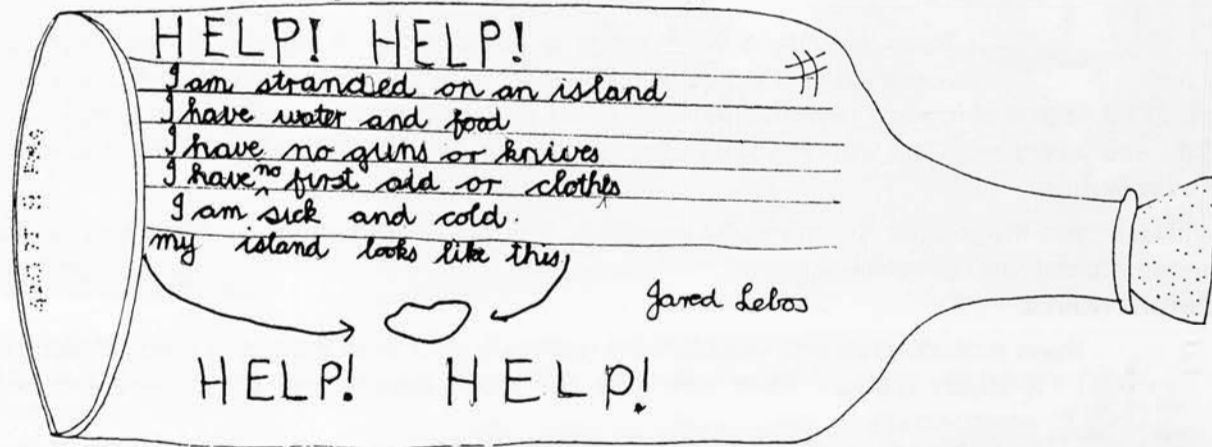 HELP! HELP!
I am stranded on an island
I have water and food
I have no guns or knives
I have no first aid or clothes
I am sick and cold.
my island looks like this
Jared Lebos
HELP! HELP!